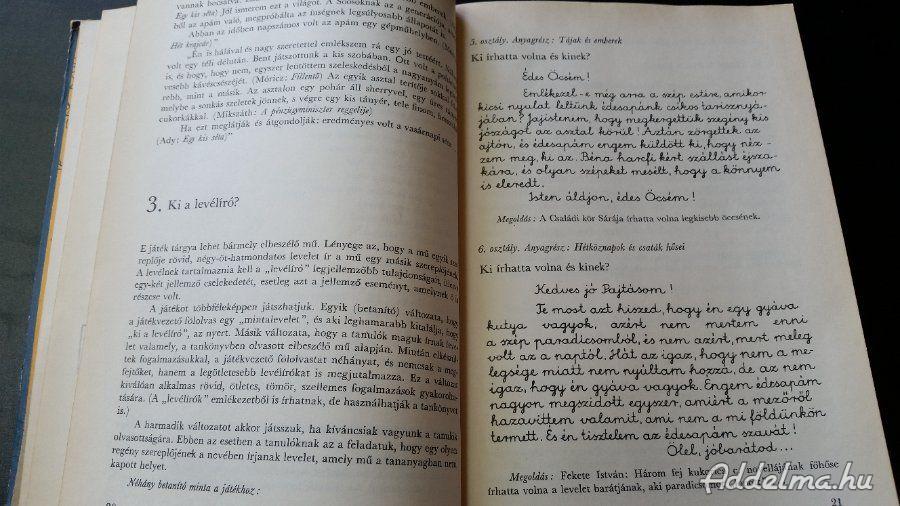 vannak bocsátva.
Egy kis séta) Jól ismerem ezt a világot. A Soósoknak az a generációja,
ből az apám való, megpróbálta az ínségnek legsúlyosabb állapotait is.
Abban az időben napszámos volt az apám egy gépműhelyben.
Hét krajcár)
„Én is hálával és nagy szeretettel emlékszem rá egy jó tettéért.
volt egy téli délután. Bent játszottunk a kis szobában. Ott volt a
is, és hogy, hogy nem, egyszer leütöttem szeleskedésből a nagyanyám
vesebb kávéscsészéjét. (Móricz: Fillentő) Az egyik asztal terítője sokkal
rebb, mint a másik. Az asztalon egy pohár áll sherryvel, egy üres
melybe a sonkás szeletek jönnek, s végre egy kis tányér, tele finom,
cukorkákkal. (Mikszáth: A pénzügyminiszter reggelije)
Ha ezt meglátják és átgondolják: eredményes volt a vasárnapi
(Ady: Egy kis séta)”
3. Ki a levélíró?
E játék tárgya lehet bármely elbeszélő mű. Lényege az, hogy a mű egyik sze-
replője rövid, négy-öt-hatmondatos levelet ír a mű egy másik szereplőjének.
A levélnek tartalmaznia kell a „levélíró” legjellemzőbb tulajdonságait,
egy-két jellemző cselekedetét, esetleg azt a jellemző eseményt, amelynek ő is
részese volt.
A játékot többféleképpen játszhatjuk. Egyik (betanító) változata, hogy
a játékvezető fölolvas egy „mintalevelet”, és aki leghamarabb kitalálja, hogy
„ki a levélíró”, az nyert. Másik változata, hogy a tanulók maguk írnak leve-
let valamely, a tankönyvben olvasott elbeszélő mű alapján. Miután elkészül-
tek fogalmazásukkal, a játékvezető fölolvastat néhányat, és nemcsak a meg-
fejtőket, hanem a legötletesebb levélírókat is megjutalmazza. Ez a változat
kiválóan alkalmas rövid, ötletes, tömör, szellemes fogalmazások gyakorolta-
tására. (A „levélírók” emlékezetből is írhatnak, de használhatják a tankönyvet
is.)
A harmadik változatot akkor játsszuk, ha kíváncsiak vagyunk a tanulók
olvasottságára. Ebben az esetben a tanulóknak az a feladatuk, hogy egy olyan
regény szereplőjének a nevében írjanak levelet, amely mű a tananyagban nem
kapott helyet.
Néhány betanító minta a játékhoz:
5. osztály. Anyagrész: Tájak és emberek
Ki írhatta volna és kinek?
Édes Öcsém!
Emlékezel-e még arra a szép estére, amikor
kicsi nyulat leltünk édesapánk csíkos tarisznyá-
jában? Jajistenem, hogy megkergettük szegény kis
jószágot az asztal körül! Aztán zörgettek az
ajtón, és édesapám engem küldött ki, hogy néz-
zem meg, ki az. Béna harcfi kért szállást éjsza-
kára, és olyan szépeket mesélt, hogy a könnyem
is eleredt.
Isten áldjon, édes Öcsém!
Megoldás: A Családi kör Sárája írhatta volna legkisebb öccsének.
6. osztály. Anyagrész: Hétköznapok és csaták hősei
Ki írhatta volna és kinek?
Kedves jó Pajtásom!
Te most azt hiszed, hogy én egy gyáva
kutya vagyok, azért nem mertem enni
a szép paradicsomból, és nem azért, mert meleg
volt az a naptól. Hát az igaz, hogy nem a me-
legsége miatt nem nyúltam hozzá, de az nem
igaz, hogy én gyáva vagyok. Engem édesapám
nagyon megszidott egyszer, amiért a mezőről
hazavittem valamit, ami nem a mi földünkön
termett. És én tisztelem az édesapám szavát!
Ölel, jóbarátod...
Megoldás: Fekete István: Három fej kukorica c. novellájának főhőse
írhatta volna a levelet barátjának, aki
21
Addelma.hu